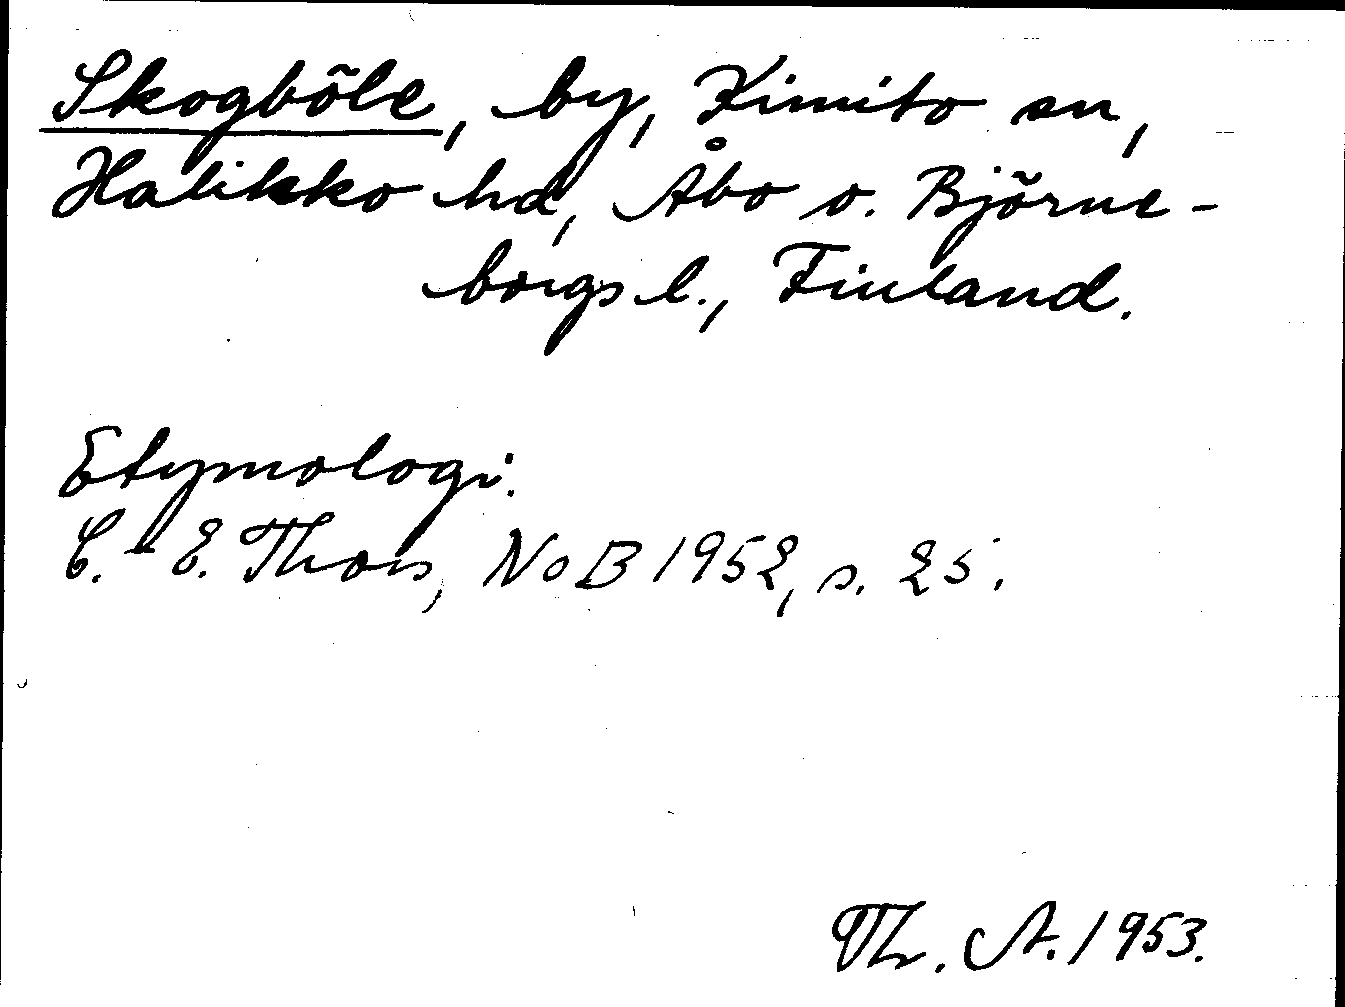 Skogböle, by, Kimito sn,
Halikko hd, Åbo o. Björne-
borgs l., Finland.
Etymologi:
C.-E. Thors, NoB 1952, s. 25.
Th. A. 1953.